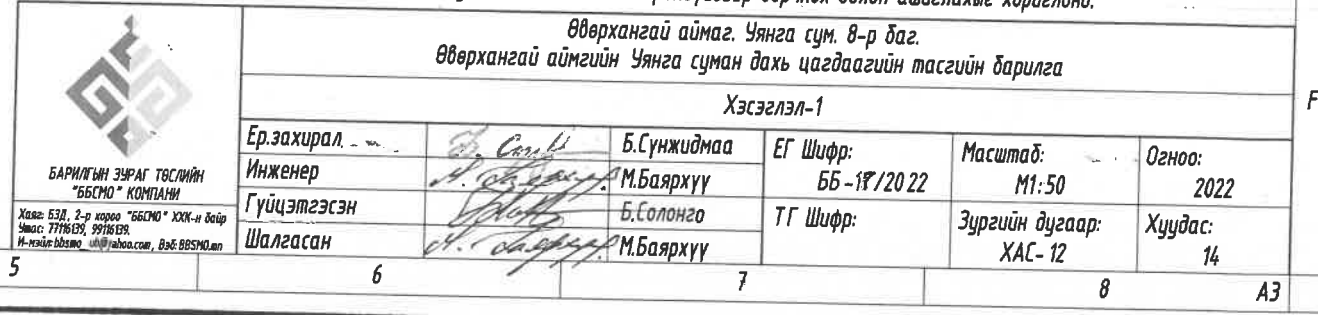 хориглоно.
Өвөрхангай аймаг. Уянга сум. 8-р баг.
Өвөрхангай аймгийн Уянга суман дахь цагдаагийн тасгийн барилга
Хэсэглэл-1
F
БАРИЛГЫН ЗУРАГ ТӨСЛИЙН
"ББСМО" КОМПАНИ
Хаяг: БЗД, 2-р хороо "ББСМО" ХХК-н байр
Утас: 77116139, 99116139.
И-мэйл: bbsmo_ub@yahoo.com, Вэб: BBSMO.mn
Ер.захирал Б.Сүнжидмаа
Инженер М.Баярхүү
Гүйцэтгэсэн Б.Солонго
Шалгасан М.Баярхүү
ЕГ Шифр:
ББ-17/2022
ТГ Шифр:
Масштаб:
М1:50
Зургийн дугаар:
ХАС-12
Огноо:
2022
Хуудас:
14
5 6 7 8 А3